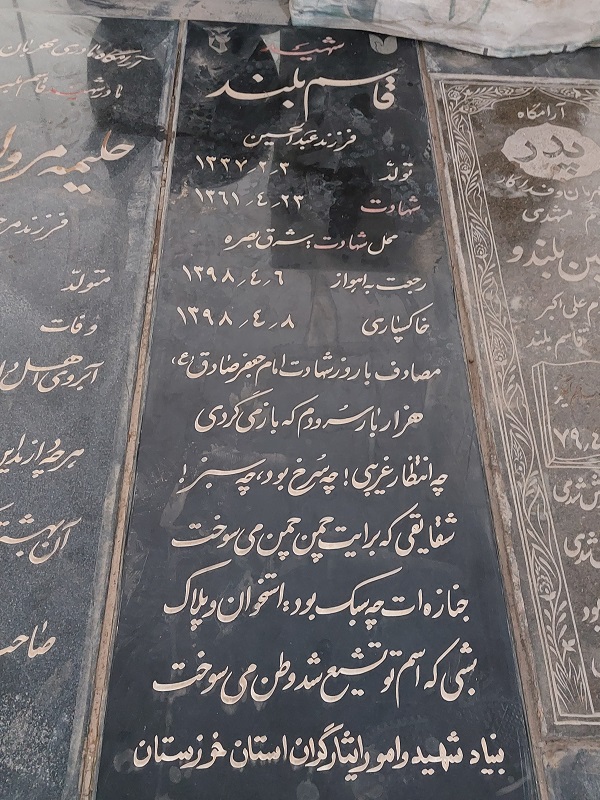 شهید
قاسم بلند
فرزند عبدالحسین
تولد ۱۳۳۷٫۲٫۳
شهادت ۱۳۶۱٫۴٫۲۳
محل شهادت: شرق بصره
رجعت به اهواز ۱۳۹۸٫۴٫۶
خاکسپاری ۱۳۹۸٫۴٫۸
مصادف با روز شهادت امام جعفر صادق (ع)
هزار بار سرودم که باز می گردی
چه انتظار غریبی! چه سُرخ بود، چه سبز!
شقایقی که برایت چمن چمن می سوخت
جنازه ات چه سبک بود: استخوان و پلاک
بشی که اسم تو تشیع شد وطن می سوخت
بنیاد شهید و امور ایثارگران استان خوزستان
آرامگاه
پدر
مهتدی
علی اکبر
قاسم بلند
۷۹٫۴
حلیمه
فرزند
متولد
وفات
آبروی اهل
هر چه
آن بهشت